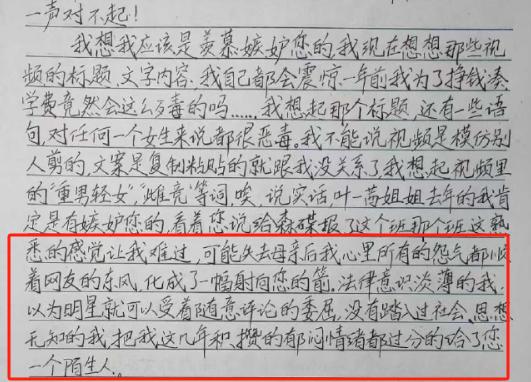 一声对不起！
我想我应该是羡慕嫉妒您的，我现在想想那些视
频的标题、文字内容，我自己都会震惊一年前我为了挣钱凑
学费竟然会这么歹毒的吗……我想起那个标题，还有一些语
句，对任何一个女生来说都很恶毒，我不能说视频是模仿别
人剪的，文案是复制粘贴的就跟我没关系了，我想起视频里
的“重男轻女”，“雌竞”等词，唉，说实话，叶一茜姐姐去年的我肯
定是有嫉妒您的，看着您说给森碟报了这个班那个班这熟
悉的感觉让我难过，可能失去母亲后我心里所有的怨气都顺
着网友的东风，化成了一幅射向您的箭，法律意识淡薄的我：
以为明星就可以受着随意评论的委屈，没有踏入过社会、思想
无知的我，把我这几年积攒的郁闷情绪都过分的给了您
一个陌生人。